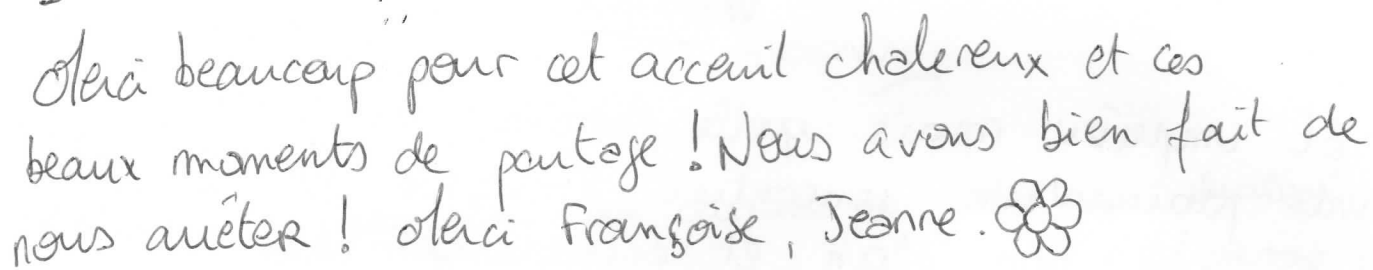 Merci beaucoup pour cet acceuil chalereux et ces
beaux moments de partage ! Nous avons bien fait de
nous arrêter ! Merci Françoise, Jeanne.